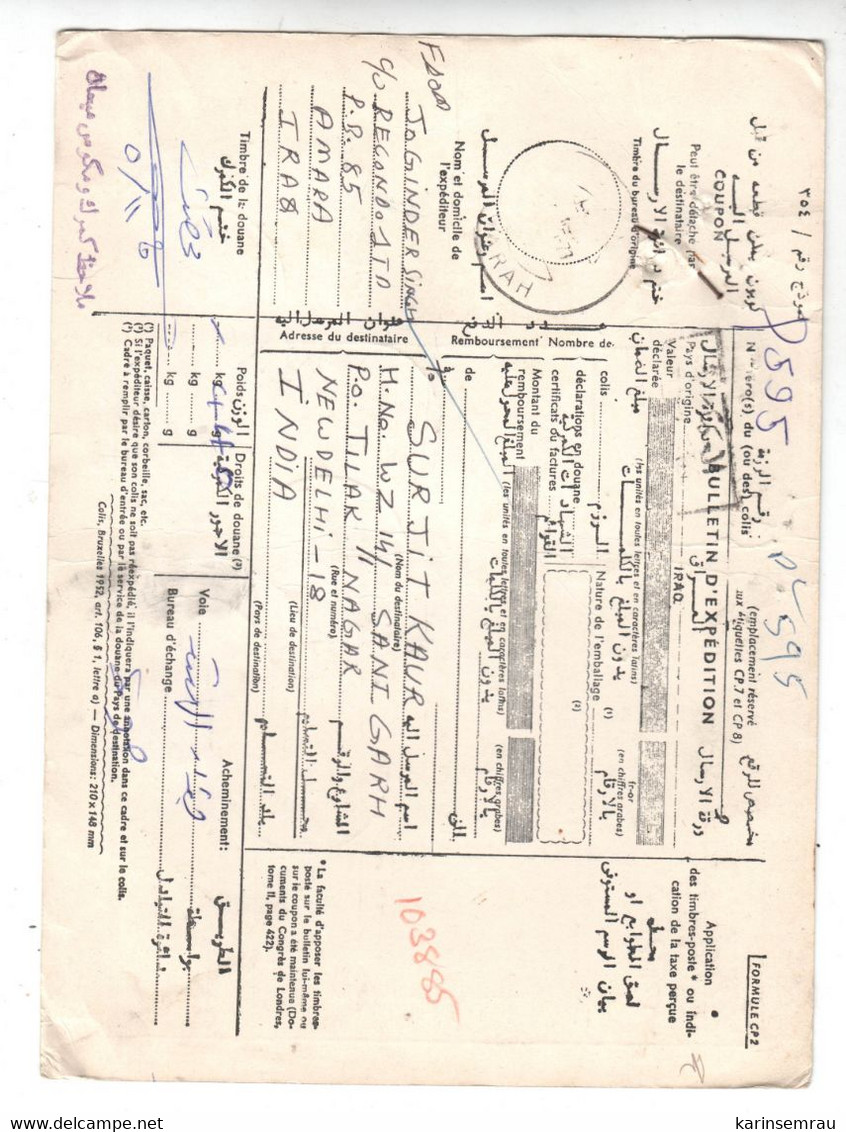 FORMULE CP2
نموذج رقم / ٣٥٤
كوبون يمكن قطعه من قبل
المرسل اليه
COUPON
Peut être détaché par
le destinataire
ختم دائرة الارسال
Timbre du bureau d'origine
RAH
اسم وعنوان المرسل
Nom et domicile de
l'expéditeur
From
JOGINDER SINGH
C/O RECONDO-JTD
P.B. 85
AMARA
IRAQ
Timbre de la douane
ختم الكمرك
P595
PL 595
رقم الرزمة
Numéro(s) du (ou des) colis
(emplacement réservé
aux étiquettes CP.7 et CP 8)
مخصص للرقم
BULLETIN D'EXPÉDITION
ورقة الارسال
Pays d'origine
IRAQ
العراق
Valeur
déclarée
مبلغ الضمان
(les unités en toutes lettres et en caractères latins)
يدون المبلغ بالكلمات
fr-or
(en chiffres arabes)
بالارقام
Nombre de
colis
الرزم
Nature de l'emballage
(1)
déclarations en douane
الشهادات الكمركية
certificats ou factures
القوائم
(2)
Remboursement
Montant du
remboursement
المبلغ المحول عليه
(les unités en toutes lettres et en caractères latins)
يدون المبلغ بالكلمات
(en chiffres arabes)
بالارقام
de
الى
Adresse du destinataire
عنوان المرسل اليه
To
SURJIT KAUR
اسم المرسل اليه
(Nom du destinataire)
H.No. WZ 141 SANT GARH
(Rue et numéro)
الشارع والرقم
P.O. TILAK NAGAR
(Lieu de destination)
NEW DELHI - 18
(Pays de destination)
INDIA
Poids
الوزن
kg g
kg g
Droits de douane (³)
الاجور الكمركية
Acheminement:
الطريق
Voie
بواسطة
Bureau d'échange
دائرة التبادل
(¹) Paquet, caisse, carton, corbeille, sac, etc.
(²) Si l'expéditeur désire que son colis ne soit pas réexpédié, il l'indiquera par une annotation dans ce cadre et sur le colis.
(³) Cadre à remplir par le bureau d'entrée ou par le service de la douane du Pays de destination.
Colis, Bruxelles 1952, art. 106, § 1, lettre a) — Dimensions: 210 x 148 mm
Application
des timbres-poste* ou indi-
cation de la taxe perçue
محل
لصق الطوابع او
بيان الرسم المستوفى
103885
* La faculté d'apposer les timbres-
poste sur le bulletin lui-même ou
sur le coupon a été maintenue (Do-
cuments du Congrès de Londres,
tome II, page 422).
delcampe.net
karinsemrau